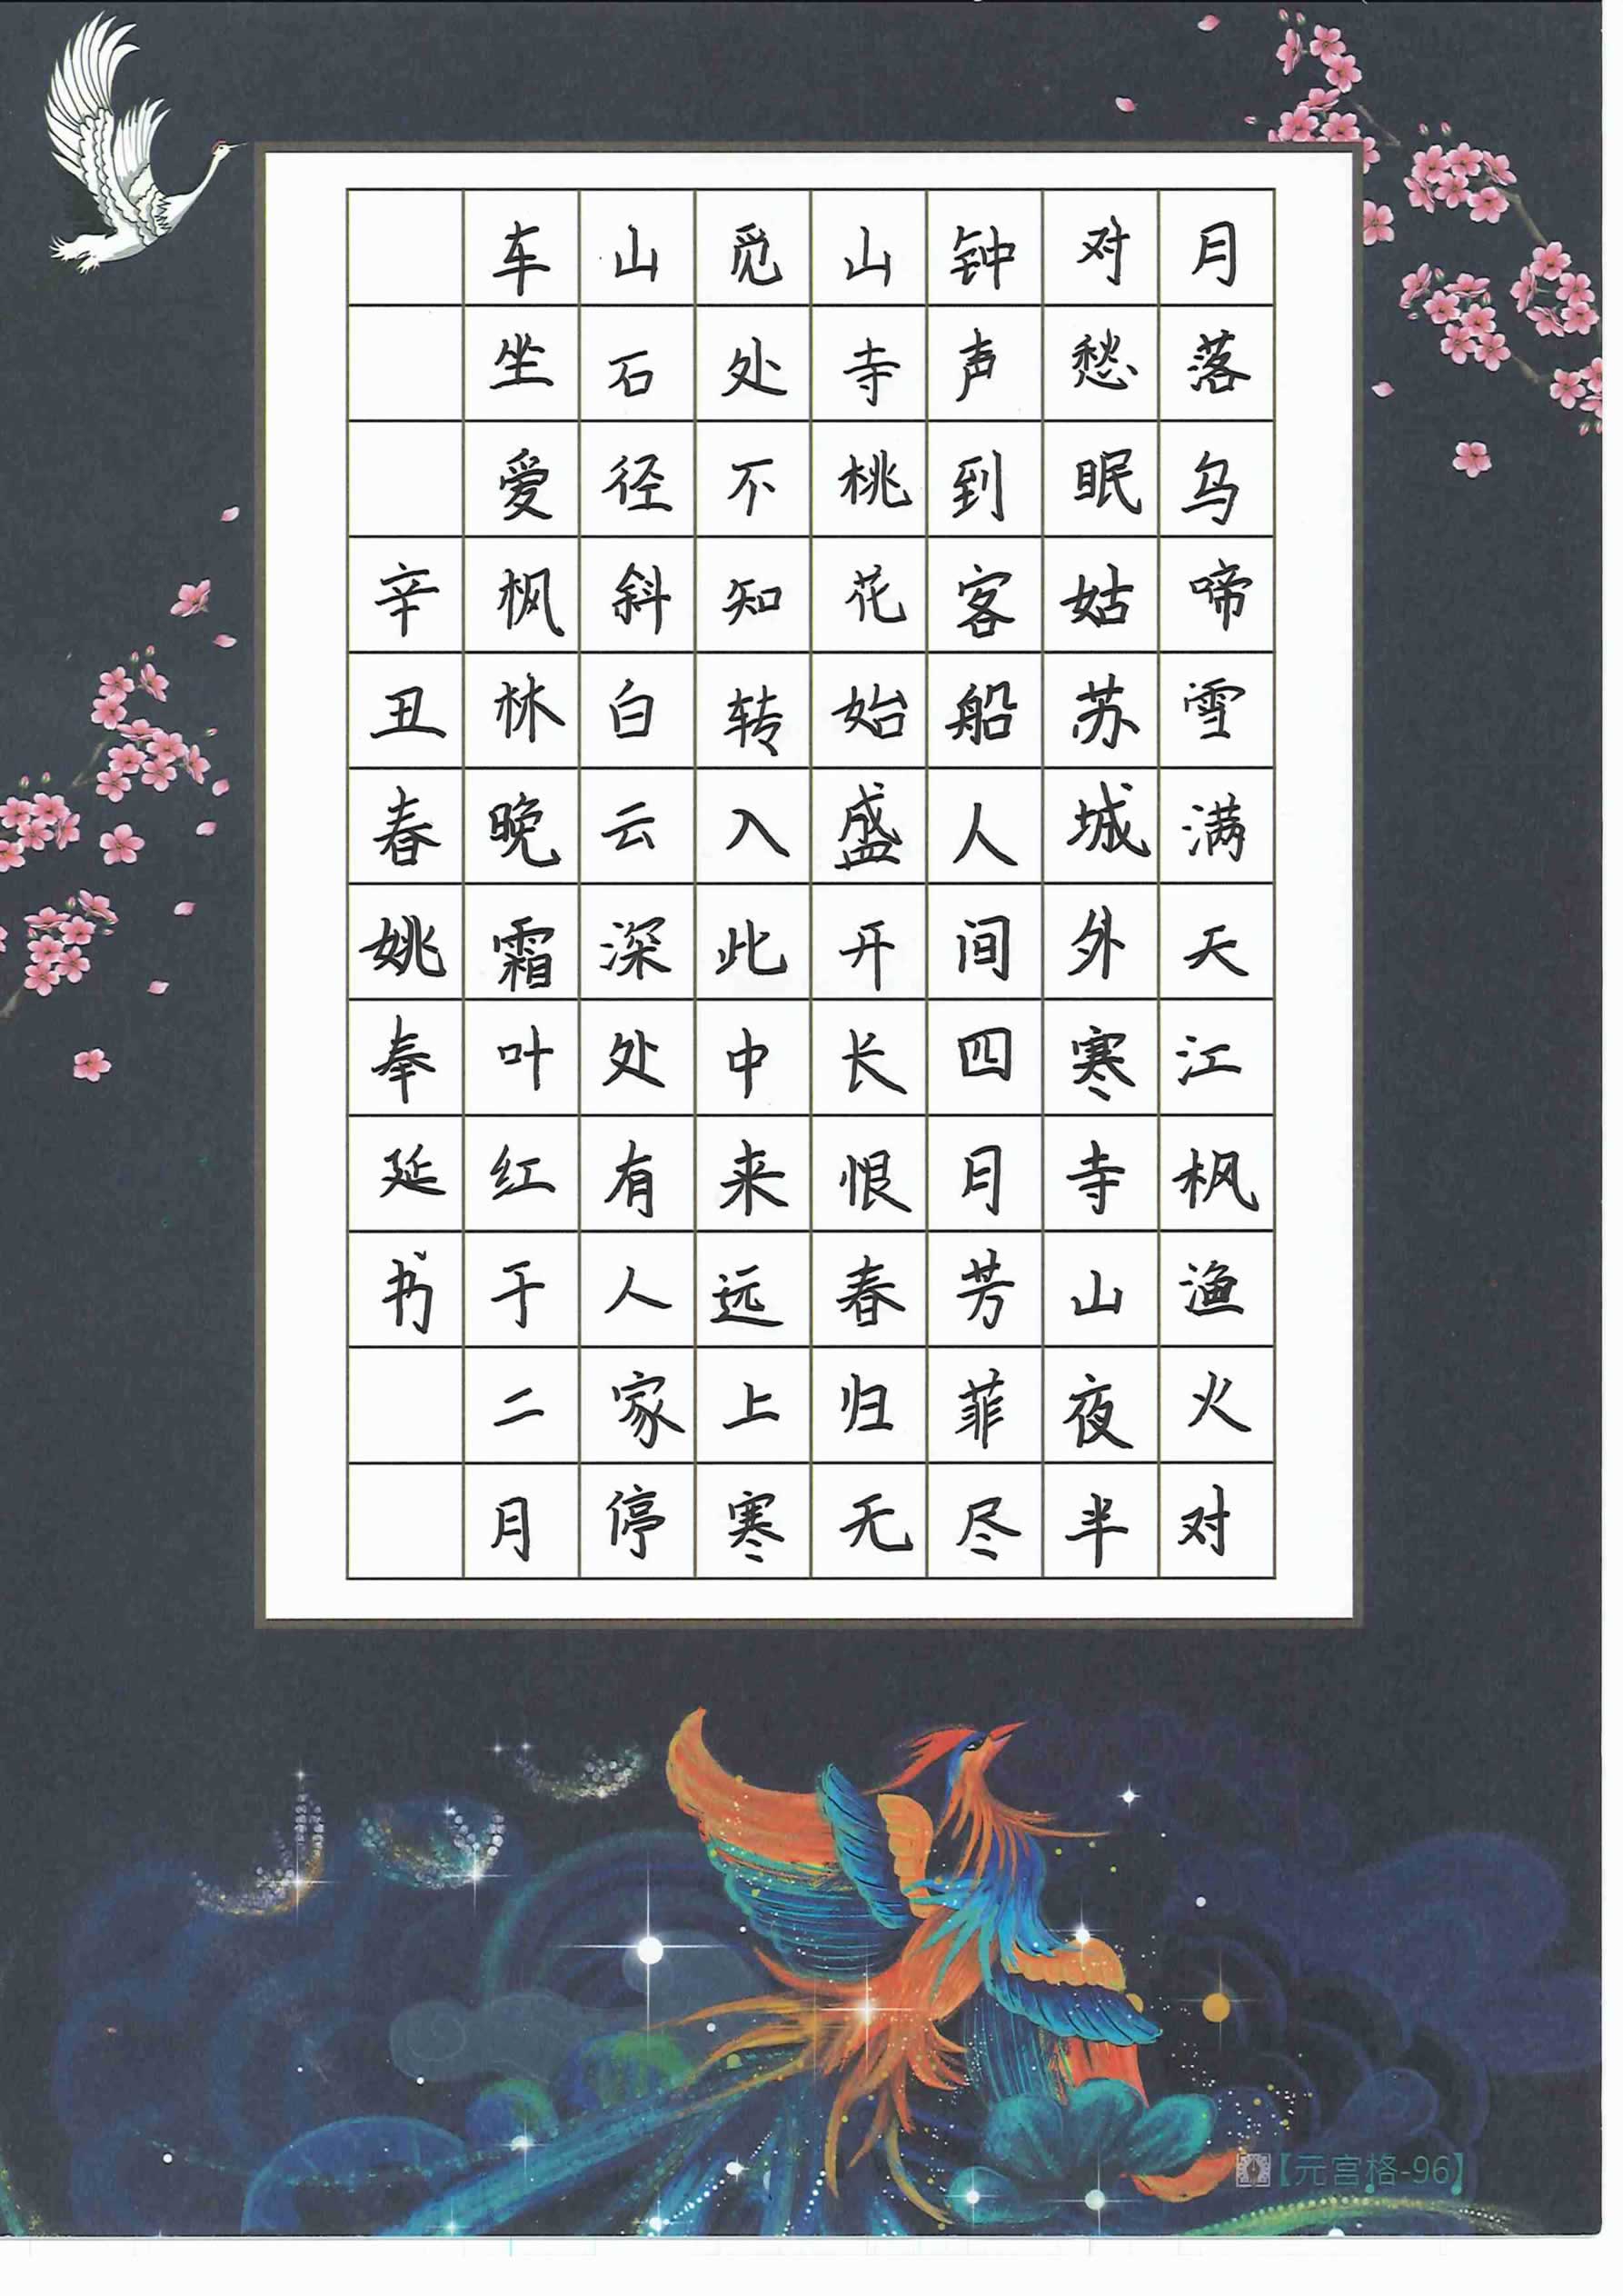 月落乌啼雪满天江枫渔火对
对愁眠姑苏城外寒寺山夜半
钟声到客船人间四月芳菲尽
山寺桃花始盛开长恨春归无
觅处不知转入此中来远上寒
山石径斜白云深处有人家停
车坐爱枫林晚霜叶红于二月
辛丑春姚奉延书
【元宫格-96】